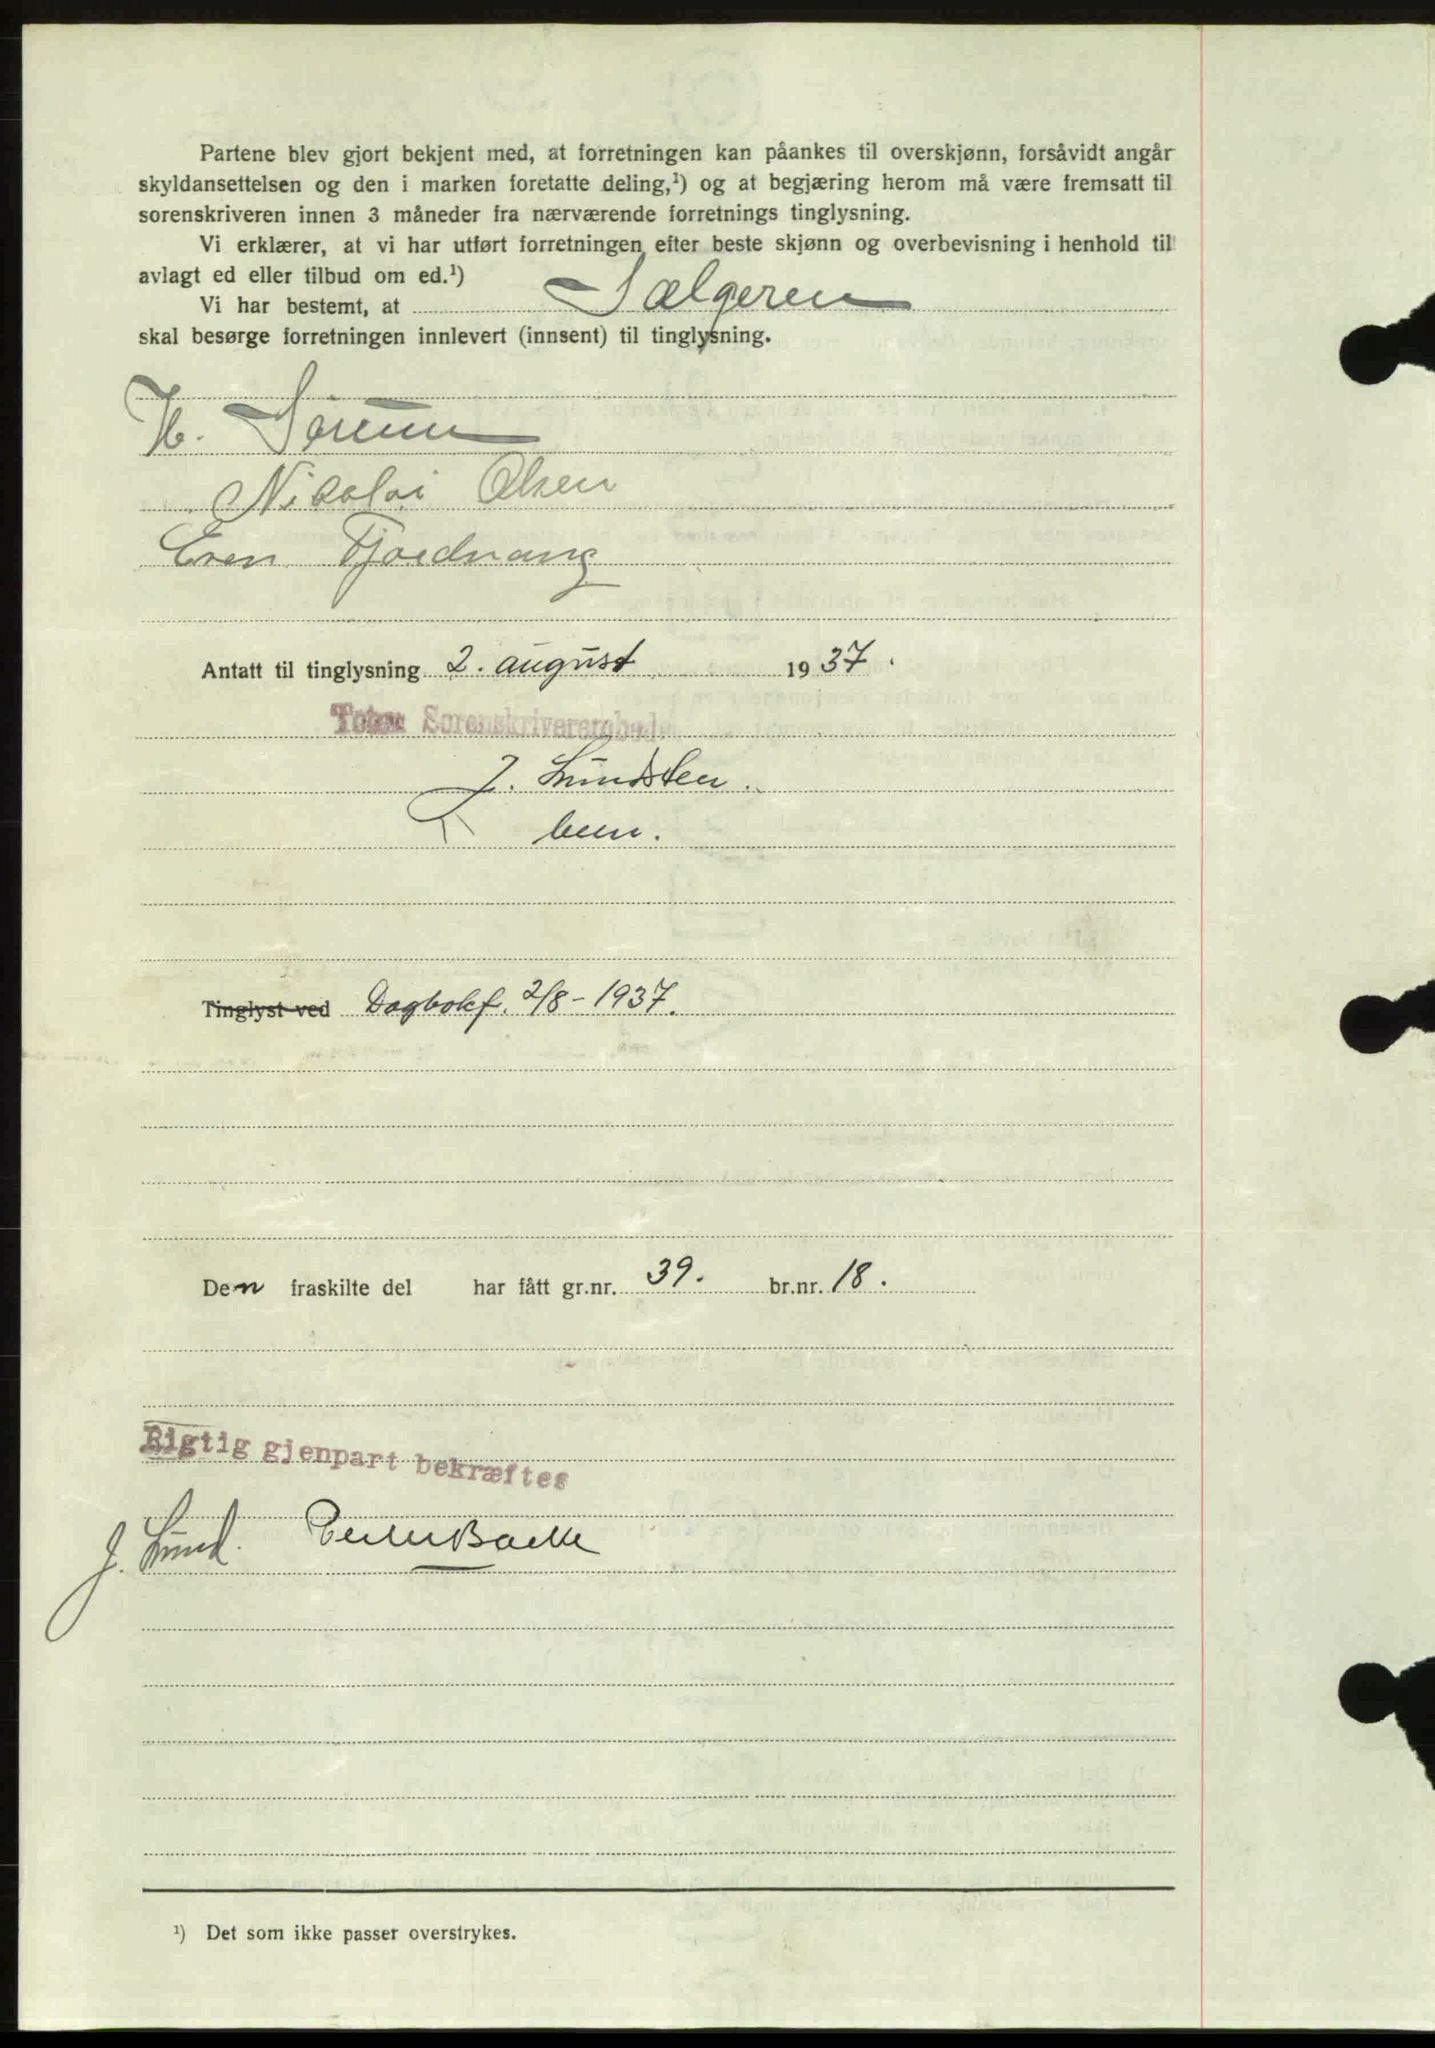 Partene blev gjort bekjent med, at forretningen kan påankes til overskjønn, forsåvidt angår
skyldansettelsen og den i marken foretatte deling,¹) og at begjæring herom må være fremsatt til
sorenskriveren innen 3 måneder fra nærværende forretnings tinglysning.
Vi erklærer, at vi har utført forretningen efter beste skjønn og overbevisning i henhold til
avlagt ed eller tilbud om ed.¹)
Vi har bestemt, at Sælgeren
skal besørge forretningen innlevert (innsent) til tinglysning.
Nikolai Olsen
Even
Antatt til tinglysning 2. august 1937.
Sorenskriverembede
J. Lundsten
Tinglyst ved Dagbokf. 2/8-1937.
Den fraskilte del har fått gr.nr. 39. br.nr. 18.
Rigtig gjenpart bekræftes
J. Lund.
¹) Det som ikke passer overstrykes.